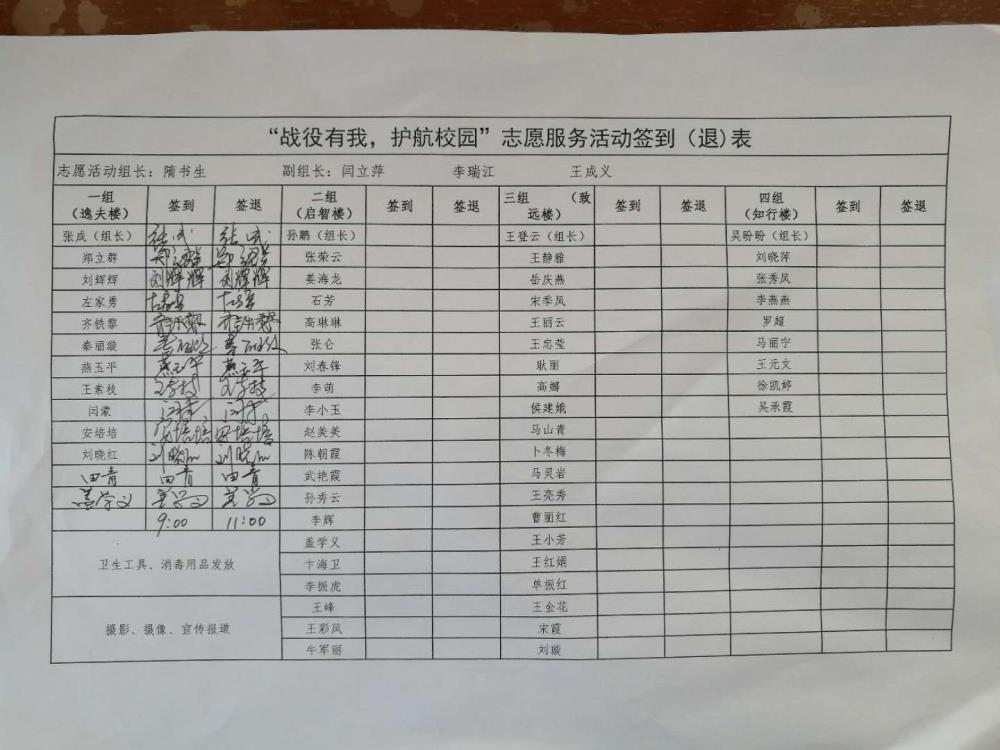 “战役有我，护航校园”志愿服务活动签到（退）表
志愿活动组长：隋书生 副组长：闫立萍 李瑞江 王成义
一组（逸夫楼） 签到 签退 二组（启智楼） 签到 签退 三组（致远楼） 签到 签退 四组（知行楼） 签到 签退
张成（组长） 张成 张成 孙鹏（组长） 王登云（组长） 吴盼盼（组长）
郑立群 郑立群 郑立群 张荣云 王静雅 刘晓萍
刘辉辉 刘辉辉 刘辉辉 姜海龙 岳庆燕 张秀凤
左家勇 左家勇 左家勇 石芳 宋季凤 李燕燕
齐铁黎 齐铁黎 齐铁黎 高琳琳 王丽云 罗超
秦丽璇 秦丽璇 秦丽璇 张仑 王忠莹 马丽宁
燕玉平 燕玉平 燕玉平 刘春锋 耿丽 王元文
王素枝 王素枝 王素枝 李萌 高娜 徐凯婷
闫蒙 闫蒙 闫蒙 李小玉 侯建娥 吴承霞
安培培 安培培 安培培 赵美美 马山青
刘晓红 刘晓红 刘晓红 陈朝霞 卜冬梅
田青 田青 田青 武艳霞 马灵岩
盖学义 盖学义 盖学义 孙秀云 王亮秀
9:00 11:00 李辉 曹丽红
卫生工具、消毒用品发放 盖学义 王小芳
卞海卫 王红娟
李振虎 单振红
摄影、摄像、宣传报道 王峰 王金花
王彩凤 宋霞
牛军丽 刘璇